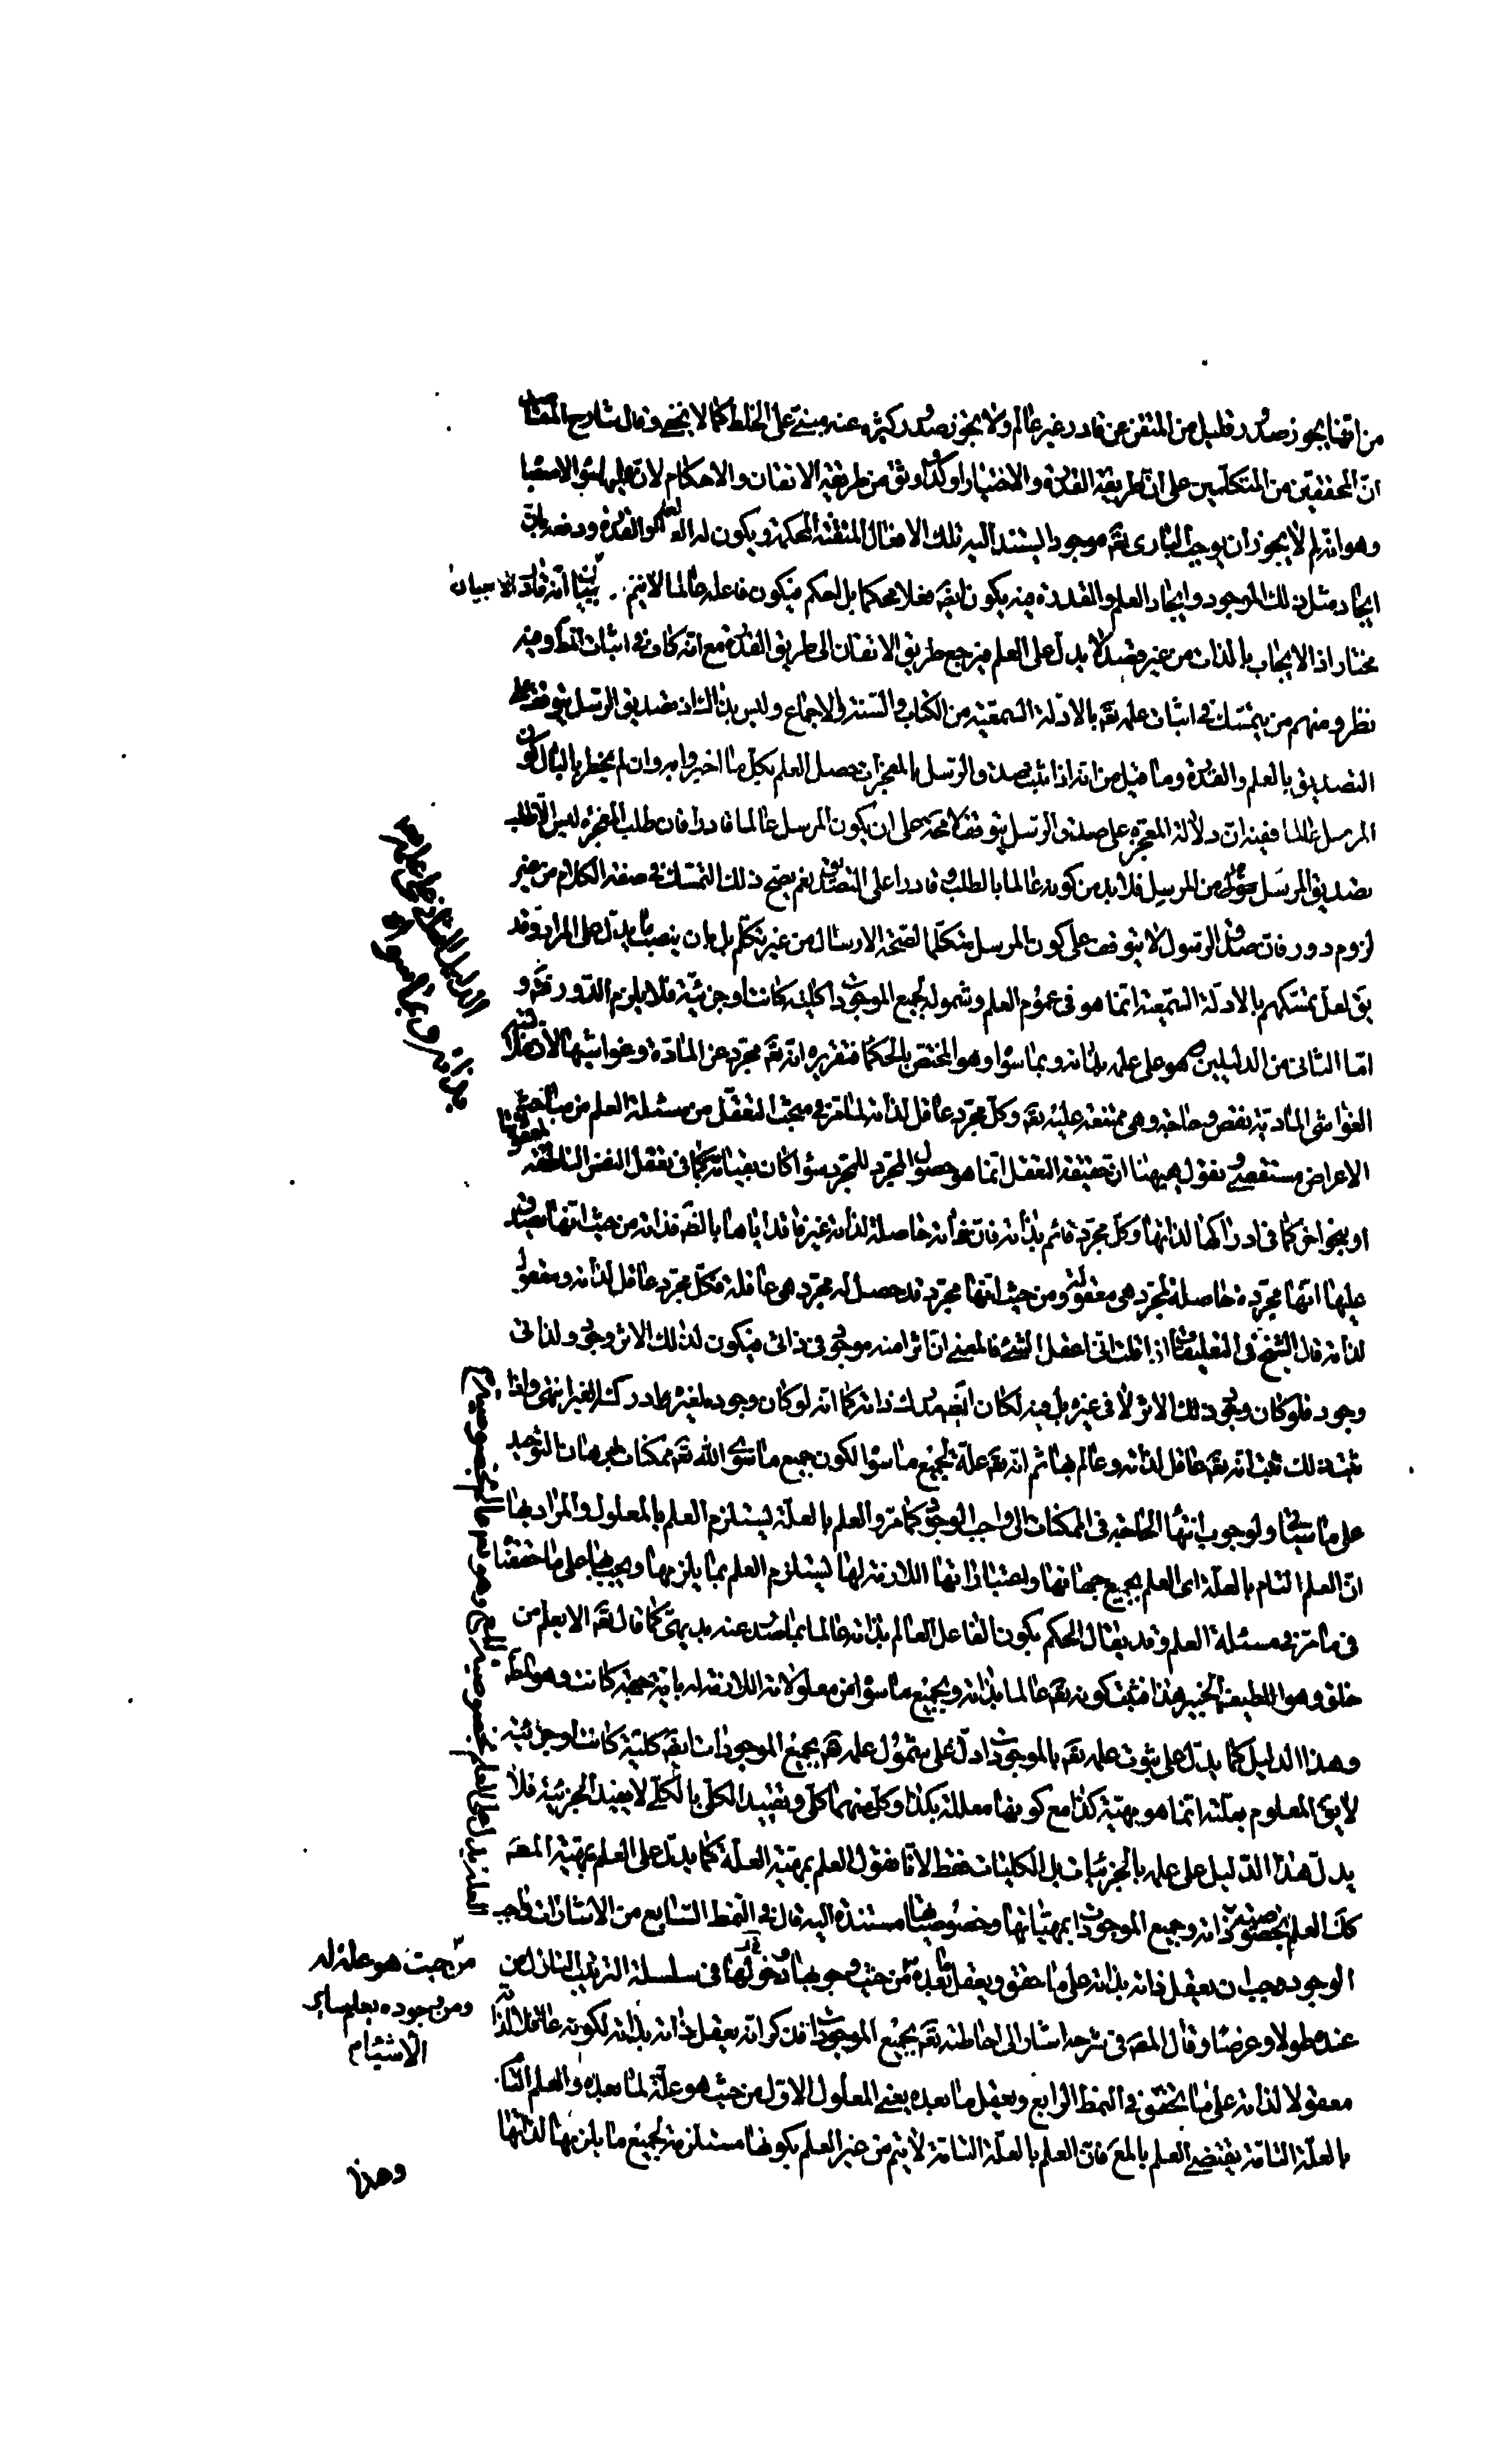 من انها يجوز صدور قليل من المتقن عن قادر غير عالم ولا يجوز صدور كثيره عنه مبنى على الخلط كما لا يخفى وقال شارح المقاصد
ان المحققين من المتكلمين على ان طريقة القدرة والاختيار اوكد واوثق من طريقة الاتقان والاحكام لان عليها سؤالا صعبا
وهو انه لم لا يجوز ان يوجب البارى تقم موجودا يستند اليه تلك الافعال المتقنة المحكمة ويكون له العلم والقدرة ودفعه بان
ايجاد مثل ذلك الموجود وايجاد العلم والقدرة فيه يكون ايضم فعلا محكما بل احكم فيكون فاعله عالما لا يتم . ببيان انه قادر
مختار اذ الايجاب بالذات من غير قصد لا يدل على العلم فيرجع طريق الاتقان الى طريق القدرة مع انه كاف فى اثبات المط وفيه
نظر ومنهم من يتمسك فى اثبات علمه تقم بالادلة السمعية من الكتاب والسنة والاجماع وليس بذاك اذ تصديق الرسل يتوقف على
التصديق بالعلم والقدرة وما قيل من انه اذا ثبت صدق الرسل بالمعجزات حصل العلم بكل ما اخبروا به وان لم يخطر بالبال كون
المرسل عالما ففيه ان دلالة المعجزة على صدق الرسل يتوقف لا محة على ان يكون المرسل عالما قادرا فان طلب المعجزة ليس الا طلب
تصديق المرسل من المرسل فلا بد من كونه عالما بالطلب وقادرا على التصديق نعم يصح ذلك التمسك فى صفة الكلام من غير
لزوم دور فان صدق الرسول لا يتوقف على كون المرسل متكلما لصحة الارسال من غير تكلم بل بان ينصب ما يدل على المراد وقد
يق لعل تمسكهم بالادلة السمعية انما هو فى عموم العلم وشموله لجميع الموجودات كلية كانت او جزئية فلا يلزم الدور فتم و
اما الثانى من الدليلين وهو على علمه بذاته وبما سواه وهو المختص بالحكما فتقريره انه تقم مجرد عن المادة وغواشيها لان
الغواشى المادية نقص وحاجة وهى ممتنعة عليه تقم وكل مجرد عاقل لذاته لما مر فى مبحث التعقل من مسئلة العلم من مباحث
الاعراض مستقصى ونقول ههنا ان حقيقة التعقل انما هو حصول المجرد للمجرد سواء كان بقيامه كما فى تعقل النفس الناطقة
او بنحو اخر كما فى ادراكها لذاتها وكل مجرد قائم بذاته فان ذاته حاصلة لذاته غير فاقد اياها بالضم فذاته من حيث انها يصدق
عليها انها مجردة حاصلة لمجرد هى معقولة ومن حيث انها مجرد قد حصل له مجرد هى عاقلة فكل مجرد عاقل لذاته ومعقول
لذاته قال الشيخ فى التعليقات اذا قلت انى اعقل الشئ فالمعنى ان اثرا منه موجود فى ذاتى فيكون لذلك الاثر وجود ولذاتى
وجود فلو كان وجود ذلك الاثر لا فى غيره بل فيه لكان ايضم يدرك ذاته كما انه لو كان وجوده لغيره ادركه الغير انتهى واذا
ثبت ذلك ثبت انه تقم عاقل لذاته وعالم بها ثم انه تقم علة لجميع ما سواه لكون جميع ما سوى الله تقم ممكنات ببرهان التوحيد
على ما سيأتى ولوجوب انتهاء الحاجة فى الممكنات الى واجب الوجود كما مر والعلم بالعلة يستلزم العلم بالمعلول والمراد بها
ان العلم التام بالعلة اى العلم بجميع جهاتها واعتباراتها اللازمة لها يستلزم العلم بما يلزمها ويجب بها على ما حققنا
فى ما مر فى مسئلة العلم وقد يقال الحكم بكون الفاعل العالم بذاته عالما بما صدر عنه بديهى كما قال تقم الا يعلم من
خلق وهو اللطيف الخبير هذا فثبت كونه تقم عالما بذاته وبجميع ما سواه من معلولاته اللازمة له باية جهة كانت وهو المط
وهذا الدليل كما يدل على ثبوت علمه تقم بالموجودات دل على شمول علمه تقم بجميع الموجودات ايضم كلية كانت او جزئية
لا يق المعلوم بعلته انما هو مهية كذا مع كونها معللة بكذا وكل منهما كلى وتقييد الكلى بالكلى لا يفيد الجزئية فلا
يدل هذا الدليل على علمه بالجزئيات بل الكليات فقط لانا نقول العلم بمهية العلة كما يدل على العلم بمهية المعم
كك العلم بخصوصية ذاته وجميع الموجودات بمهياتها وخصوصياتها مستندة اليه قال فى النمط السابع من الاشارات واجب
الوجود يجب ان يعقل ذاته بذاته على ما حقق ويعقل ما بعده من حيث وجوبها ودخولها فى سلسلة الترتيب النازل من
عنده طولا وعرضا وقال المصم فى شرحه اشار الى احاطته تقم بجميع الموجودات فذكر انه يعقل ذاته بذاته لكونه عاقلا لذاته
معقولا لذاته على ما تحقق فى النمط الرابع ويعقل ما بعده يعنى المعلول الاول من حيث هو علة لما بعده والعلم التام
بالعلة التامة يقتضى العلم بالمعم فان العلم بالعلة التامة لا يتم من غير العلم بكونها مستلزمة لجميع ما يلزمها لذاتها
وهذا
الدليل الثانى على علمه تعالى
بذاته وبما سواه
من حيث هو علة له
ومن وجوده يعلم سائر
الاشياء